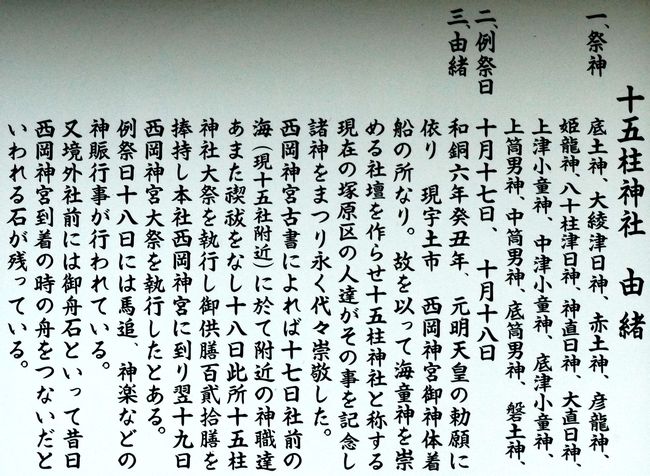 十五柱神社　由緒
一、祭神
底土神、大綾津日神、赤土神、彦龍神、
姫龍神、八十柱津日神、神直日神、大直日神
上津小童神、中津小童神、底津小童神、
上筒男神、中筒男神、底筒男神、磐土神、
二、例祭日
十月十七日、　十月十八日
三、由緒
和銅六年癸丑年、　元明天皇の勅願に
依り　現宇土市　西岡神宮御神体着
船の所なり。故を以って海童神を崇
める社壇を作らせ十五柱神社と称する
現在の塚原区の人達がその事を記念し
諸神をまつり永く代々崇敬した。
西岡神宮古書によれば十七日社前の
海（現十五社附近）に於て附近の神職達
あまた禊祓をなし十八日此所十五柱
神社大祭を執行し御供膳百貳拾膳を
捧持し本社西岡神宮に到り翌十九日
西岡神宮大祭を執行したとある。
例祭日十八日には馬追、神楽などの
神賑行事が行われている。
又境外社前には御舟石といって昔日
西岡神宮到着の時の舟をつないだと
いわれる石が残っている。